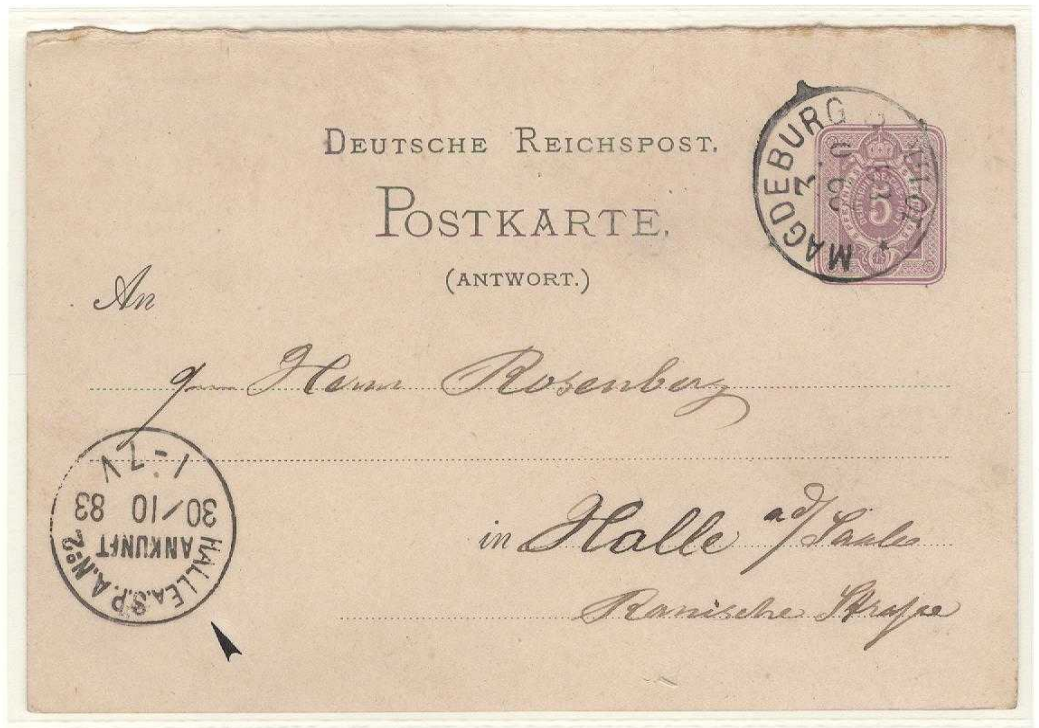 DEUTSCHE REICHSPOST.
POSTKARTE.
(ANTWORT.)
MAGDEBURG
5
An
Herrn Rosenberg
in Halle a/d Saale
Ranische Straße
HALLE a.S. P.A. No 2
ANKUNFT
30/10 83
1-2V